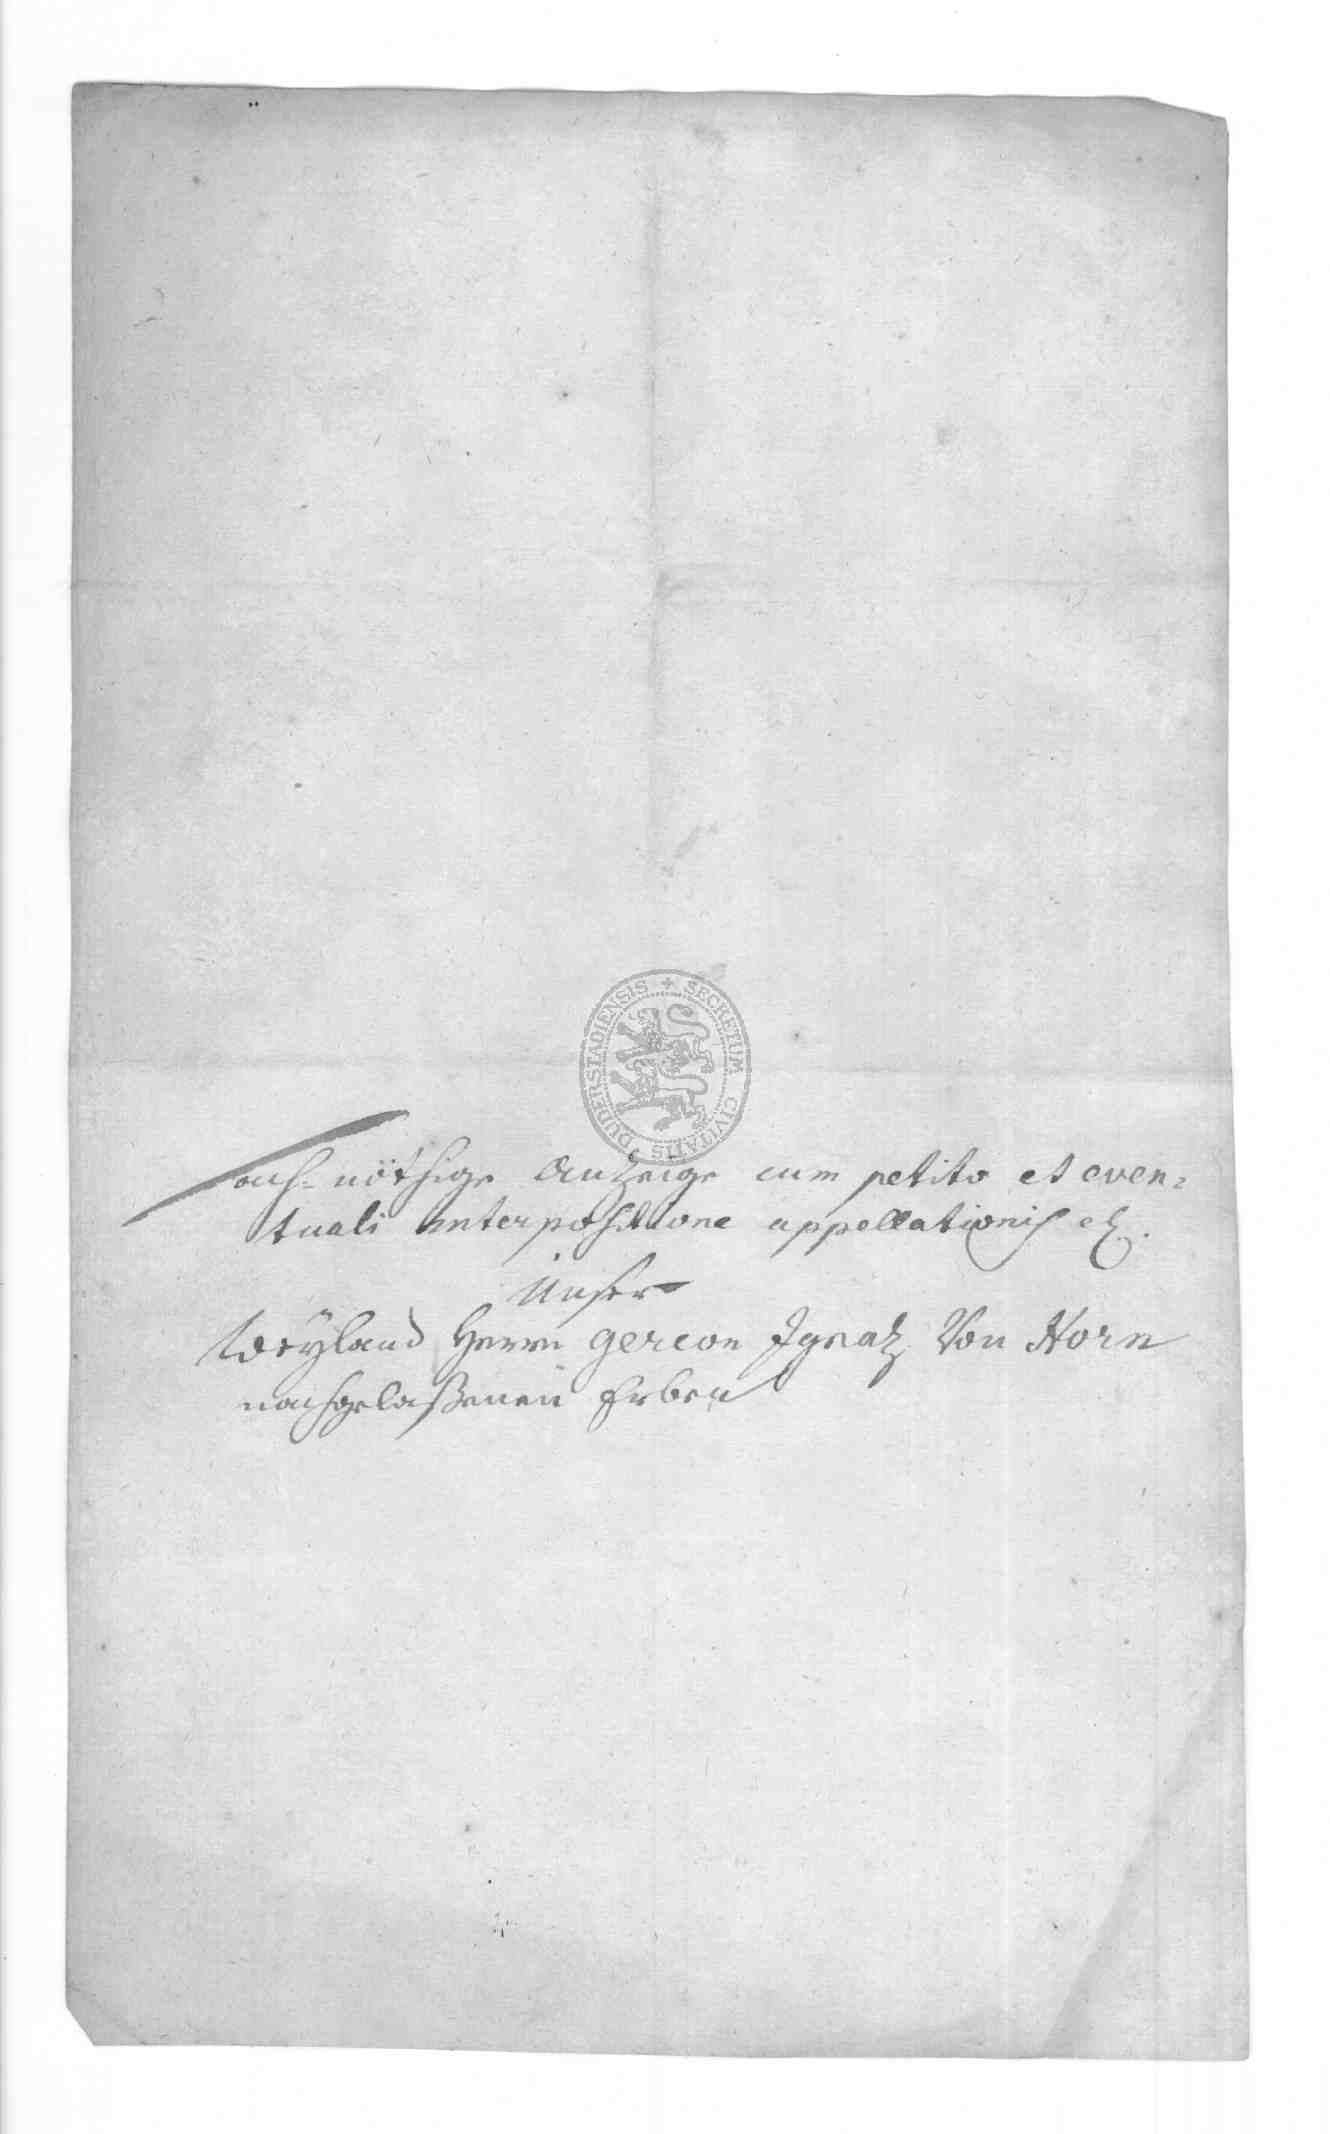 SECRETUM CIVITATIS DUDERSTADIENSIS
Sach-nöthige Anzeige cum petito et even-
tuali interpositione appellationis etc.
Unser
Weyland Herrn Gereon Ignatz Von Horn
nachgelaßenen Erben